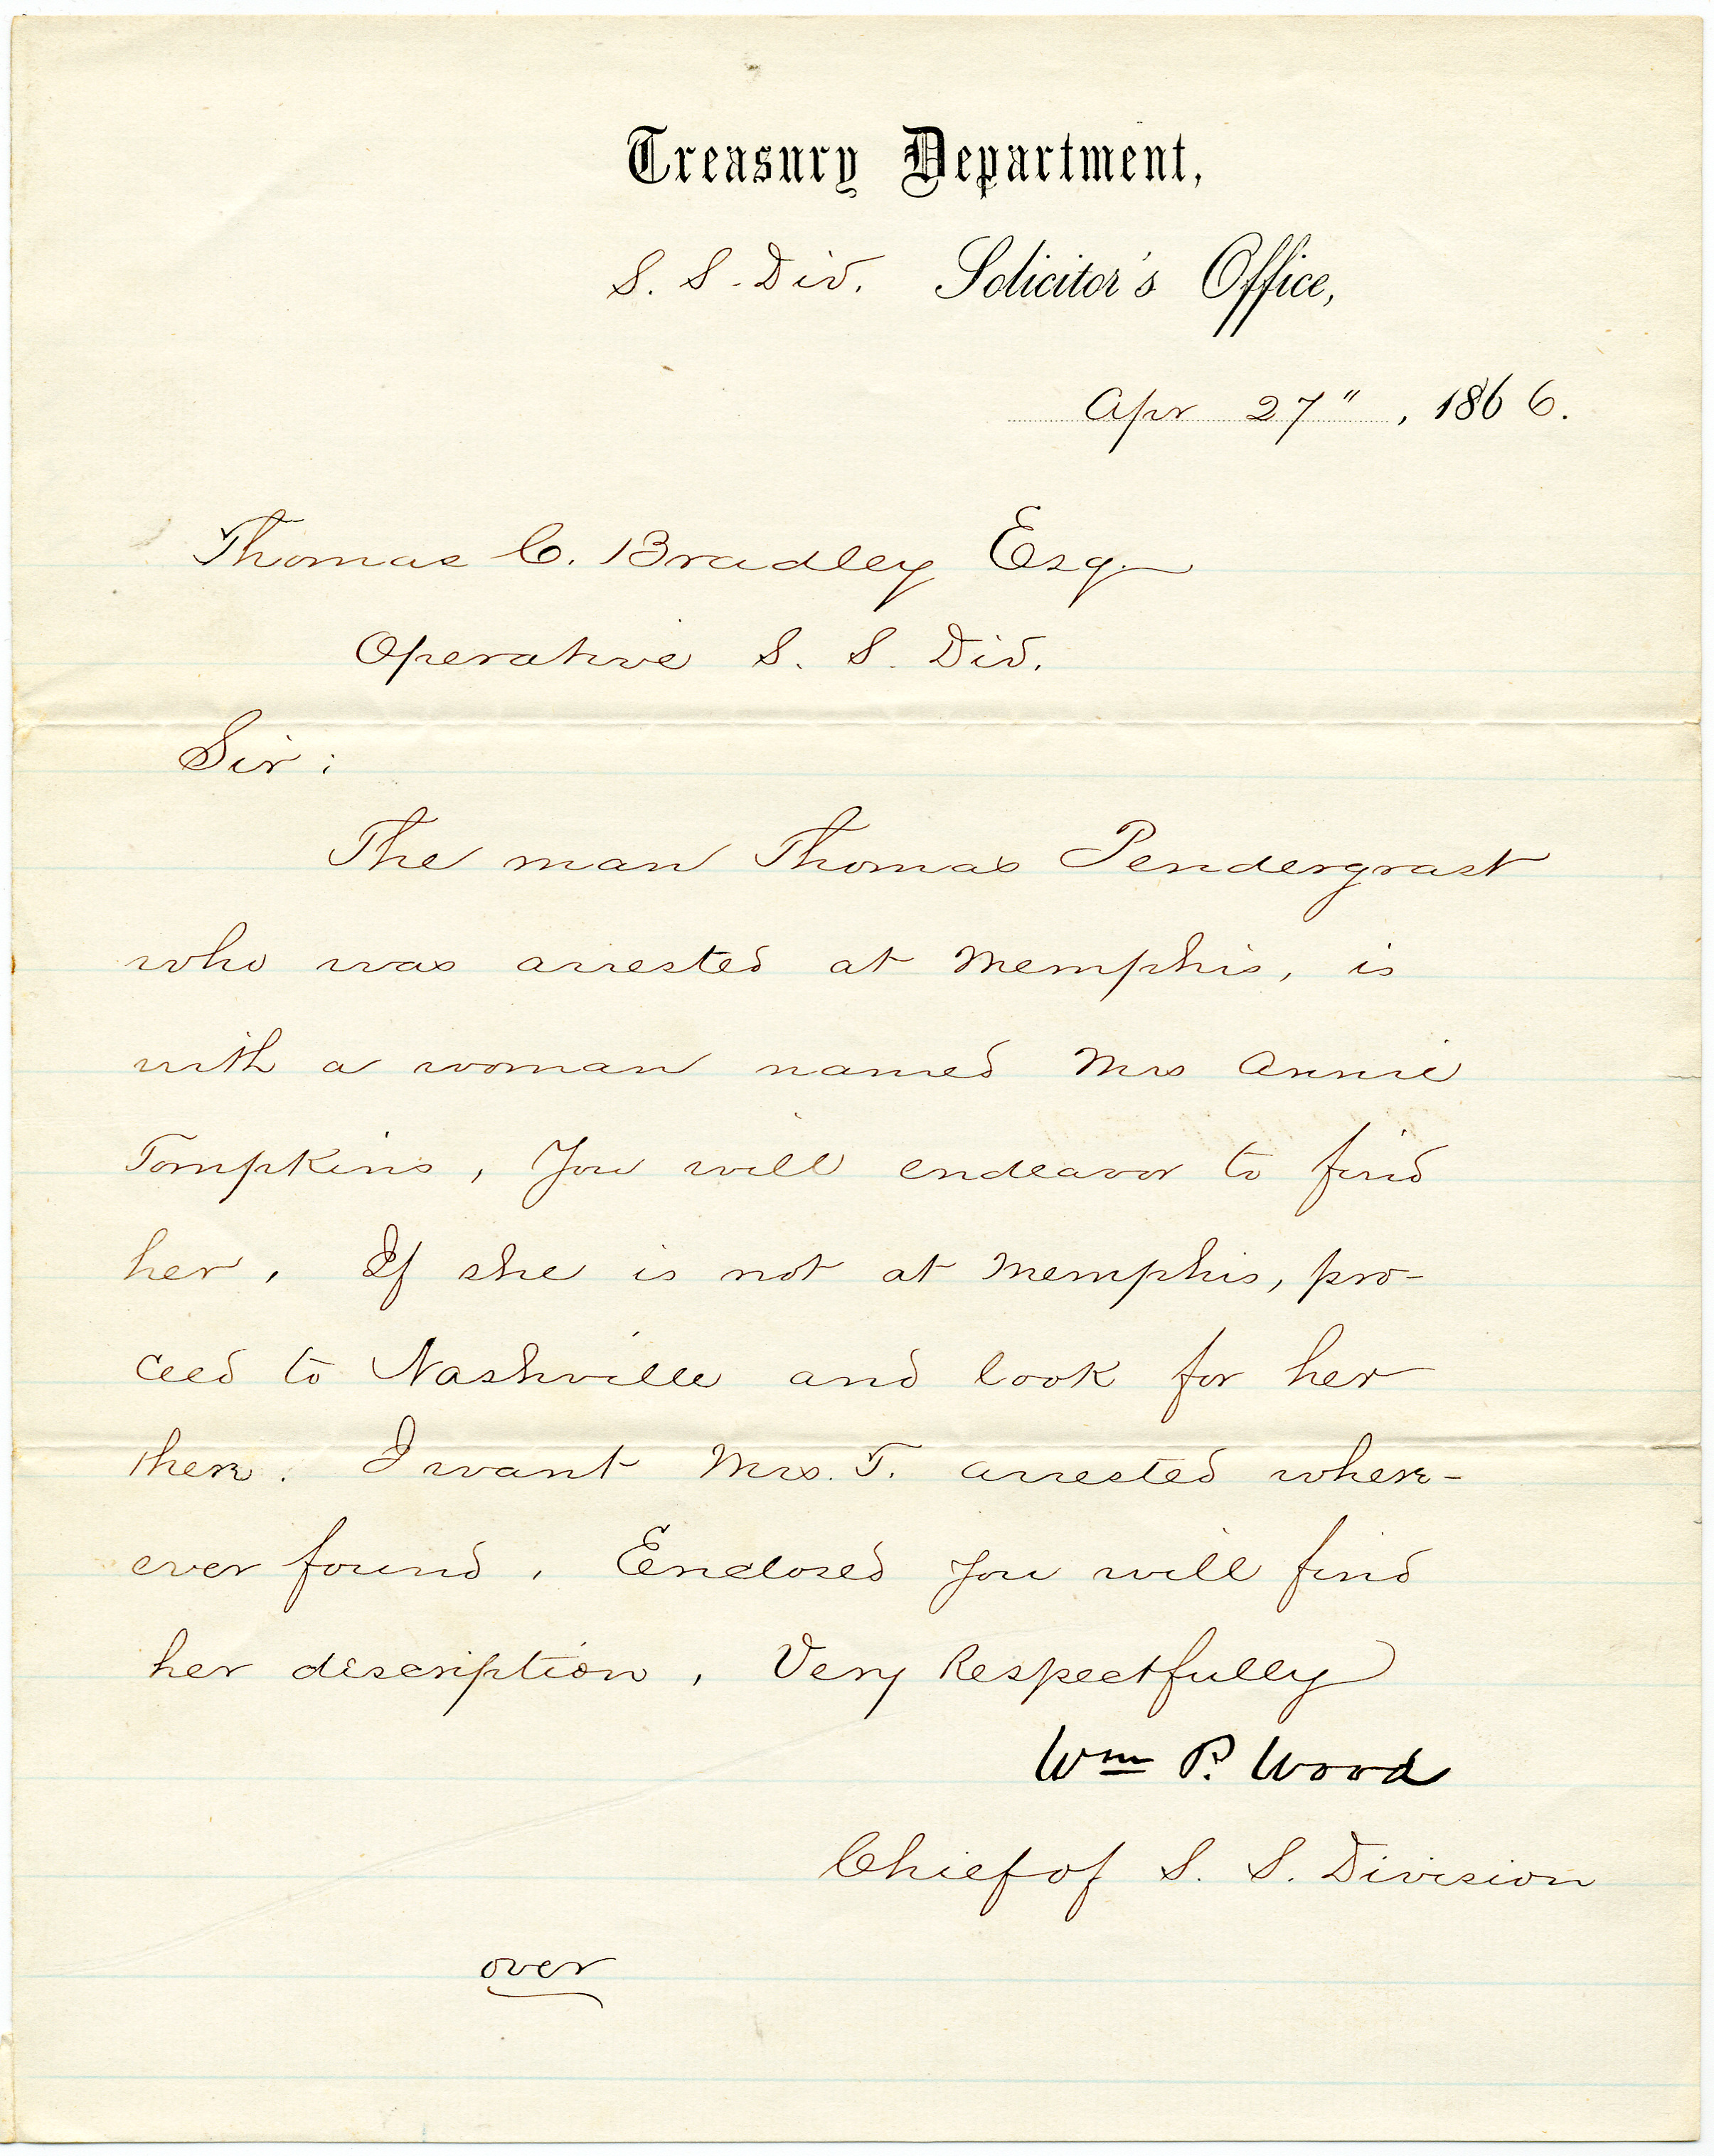 Treasury Department,
S. S. Div. Solicitor's Office,
Apr 27", 1866.
Thomas C. Bradley Esq.
Operative S. S. Div.
Sir:
The man Thomas Pendergrast
who was arrested at Memphis, is
with a woman named Mrs Annie
Tompkins, You will endeavor to find
her. If she is not at Memphis, pro-
ceed to Nashville and look for her
there. I want Mrs. T. arrested where-
ever found. Enclosed you will find
her description. Very Respectfully
Wm P. Wood
Chief of S. S. Division
over